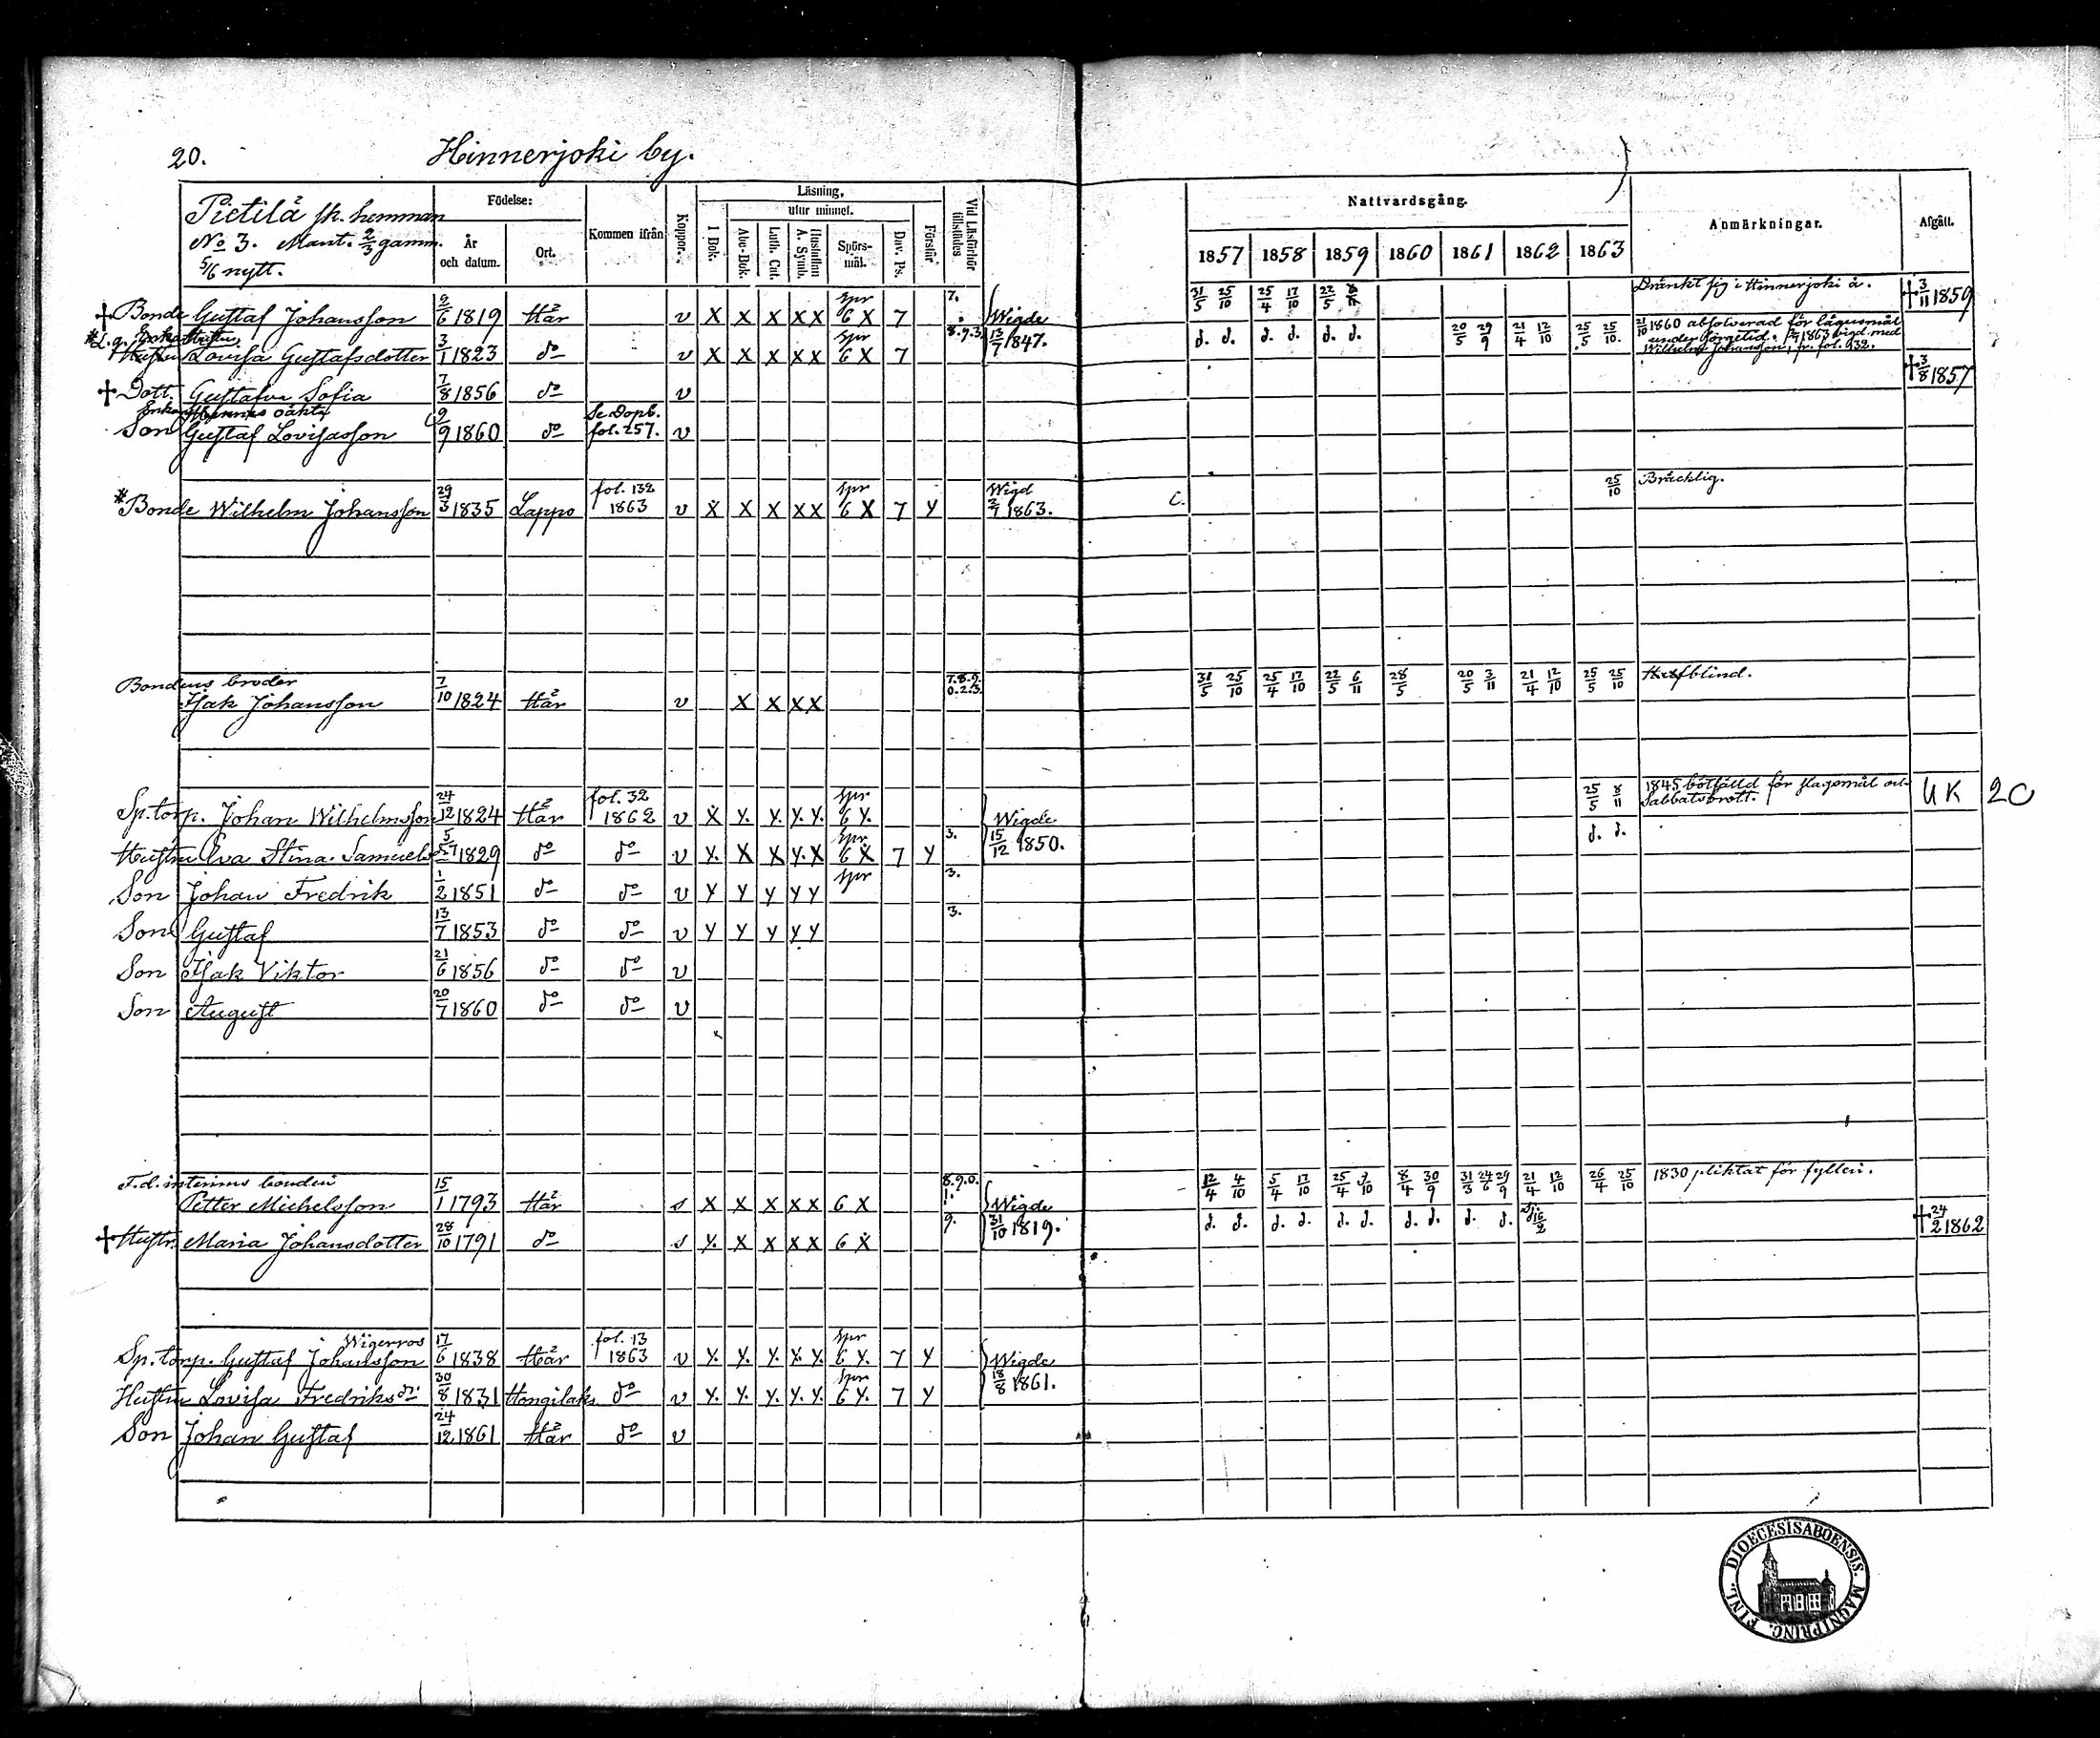 20. Hinnerjoki by.
Pietilä sk. hemman
No 3. Mant. 2/3 gamm.
5/6 nytt.
Födelse:
År och datum.
Ort.
Kommen ifrån
Koppor.
Läsning.
I Bok.
utur minnet.
Abc-Bok.
Luth. Cat.
Hustaflan A. Symb.
Spörs-mål.
Dav. Ps.
Förstår
Vid Läsförhör tillstädes
Nattvardsgång.
1857 1858 1859 1860 1861 1862 1863
Anmärkningar.
Afgått.
† Bonde Gustaf Johansson 9/6 1819 Här v X X X X X Spr 6 X 7 7. Wigde 31/5 25/10 25/4 17/10 22/5 Dränkt sig i Hinnerjoki å. † 3/11 1859
Lovisa Gustafsdotter 3/1 1823 do v X X X X X Spr 6 X 7 8.9.3. 13/7 1847. d. d. d. d. d. d. 20/5 29/9 21/4 12/10 25/5 25/10. 21/10 1860 absolverad för lägersmål
under sorgetid. 2/7 1863 vigd med
Wilhelm Johansson, fr. fol. 132.
† Dott. Gustafva Sofia 7/8 1856 do v † 3/8 1857
Enkans oäkta
Son Gustaf Lovisasson 9/9 1860 do Se Dopb. fol. 257. v
* Bonde Wilhelm Johansson 29/3 1835 Lappo fol. 132 1863 v X X X X X Spr 6 X 7 Y Wigd 2/7 1863. C. 25/10 Bräcklig.
Bondens broder
Isak Johansson 7/10 1824 Här v X X X X 7.8.9. 0.2.3. 31/5 25/10 25/4 17/10 22/5 6/11 28/5 20/5 3/11 21/4 12/10 25/5 25/10 blind.
Sp. torp. Johan Wilhelmsson 24/12 1824 Här fol. 32 1862 v X Y. Y. Y. Y. Spr 6 Y. Wigde 25/5 8/11 1845 bötfälld för slagsmål och
Sabbatsbrott. UK 20
Hustru Eva Stina Samuels 1829 do do v Y. X X Y. X Spr. 6 X 7 Y 3. 15/12 1850. d. d.
Son Johan Fredrik 1/2 1851 do do v Y Y Y Y Y Spr 3.
Son Gustaf 13/7 1853 do do v Y Y Y Y Y 3.
Son Isak Viktor 21/6 1856 do do v
Son August 20/7 1860 do do v
F.d. interims bonden
Petter Michelsson 15/1 1793 Här s X X X X X 6 X 8.9.0. 1. Wigde 12/4 4/10 5/4 17/10 25/4 9/10 8/4 30/9 31/3 24/6 29/9 21/4 12/10 26/4 25/10 1830 pliktat för fylleri.
† Hustr. Maria Johansdotter 28/10 1791 do s Y. X X X X 6 X 9. 31/10 1819. d. d. d. d. d. d. d. d. d. d. 16/2 † 24/2 1862
Wigerros
Sp. torp. Gustaf Johansson 17/6 1838 Här fol. 13 1863 v Y. Y. Y. Y. Y. Spr 6 Y. 7 Y Wigde
Hustru Lovisa Fredriksdr 30/8 1831 Hongilaks do v Y. Y. Y. Y. Y. Spr 6 Y. 7 Y 18/8 1861.
Son Johan Gustaf 24/12 1861 Här do v
DIOECESIS ABOENSIS. MAGNI PRINC. FINL.